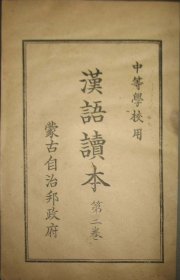 中等學校用
漢語讀本 第二卷
蒙古自治邦政府